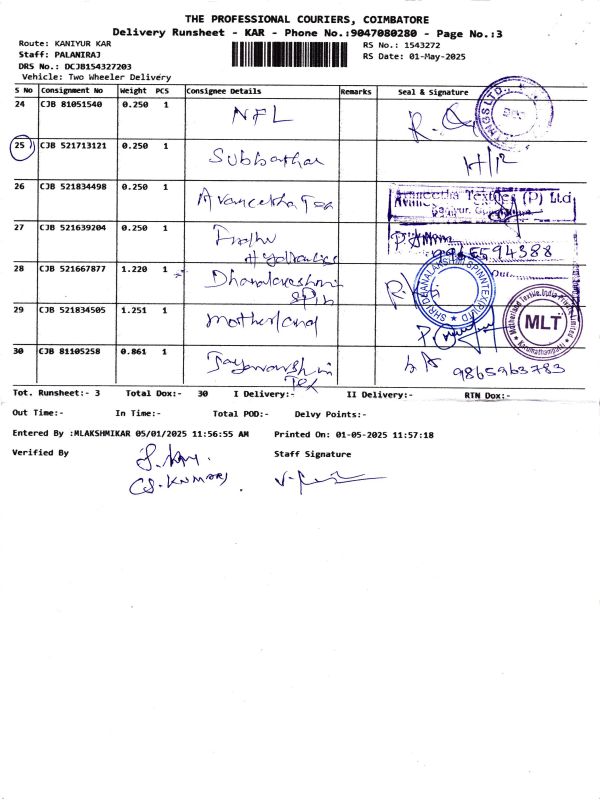 THE PROFESSIONAL COURIERS, COIMBATORE
Delivery Runsheet - KAR - Phone No.:9047080280 - Page No.:3
Route: KANIYUR KAR
RS No.: 1543272
Staff: PALANIRAJ
RS Date: 01-May-2025
DRS No.: DCJB154327203
Vehicle: Two Wheeler Delivery
S No Consignment No Weight PCS Consignee Details Remarks Seal & Signature
24 CJB 81051540 0.250 1 NFL
25 CJB 521713121 0.250 1 Subbathal 14/12
26 CJB 521834498 0.250 1 Avaneetha Tex
Avaneetha Textiles (P) Ltd
27 CJB 521639204 0.250 1
Hydraulics
9965594388
28 CJB 521667877 1.220 1 Dhanalakshmi
Spin
SHRI DHANALAKSHMI SPINNTEX (P) LTD
29 CJB 521834505 1.251 1 Motherland
Motherland Textile India Private Limited
MLT
Karumathampatti
30 CJB 81105258 0.861 1
Tex
9865963783
Tot. Runsheet:- 3 Total Dox:- 30 I Delivery:- II Delivery:- RTN Dox:-
Out Time:- In Time:- Total POD:- Delvy Points:-
Entered By :MLAKSHMIKAR 05/01/2025 11:56:55 AM Printed On: 01-05-2025 11:57:18
Verified By Staff Signature